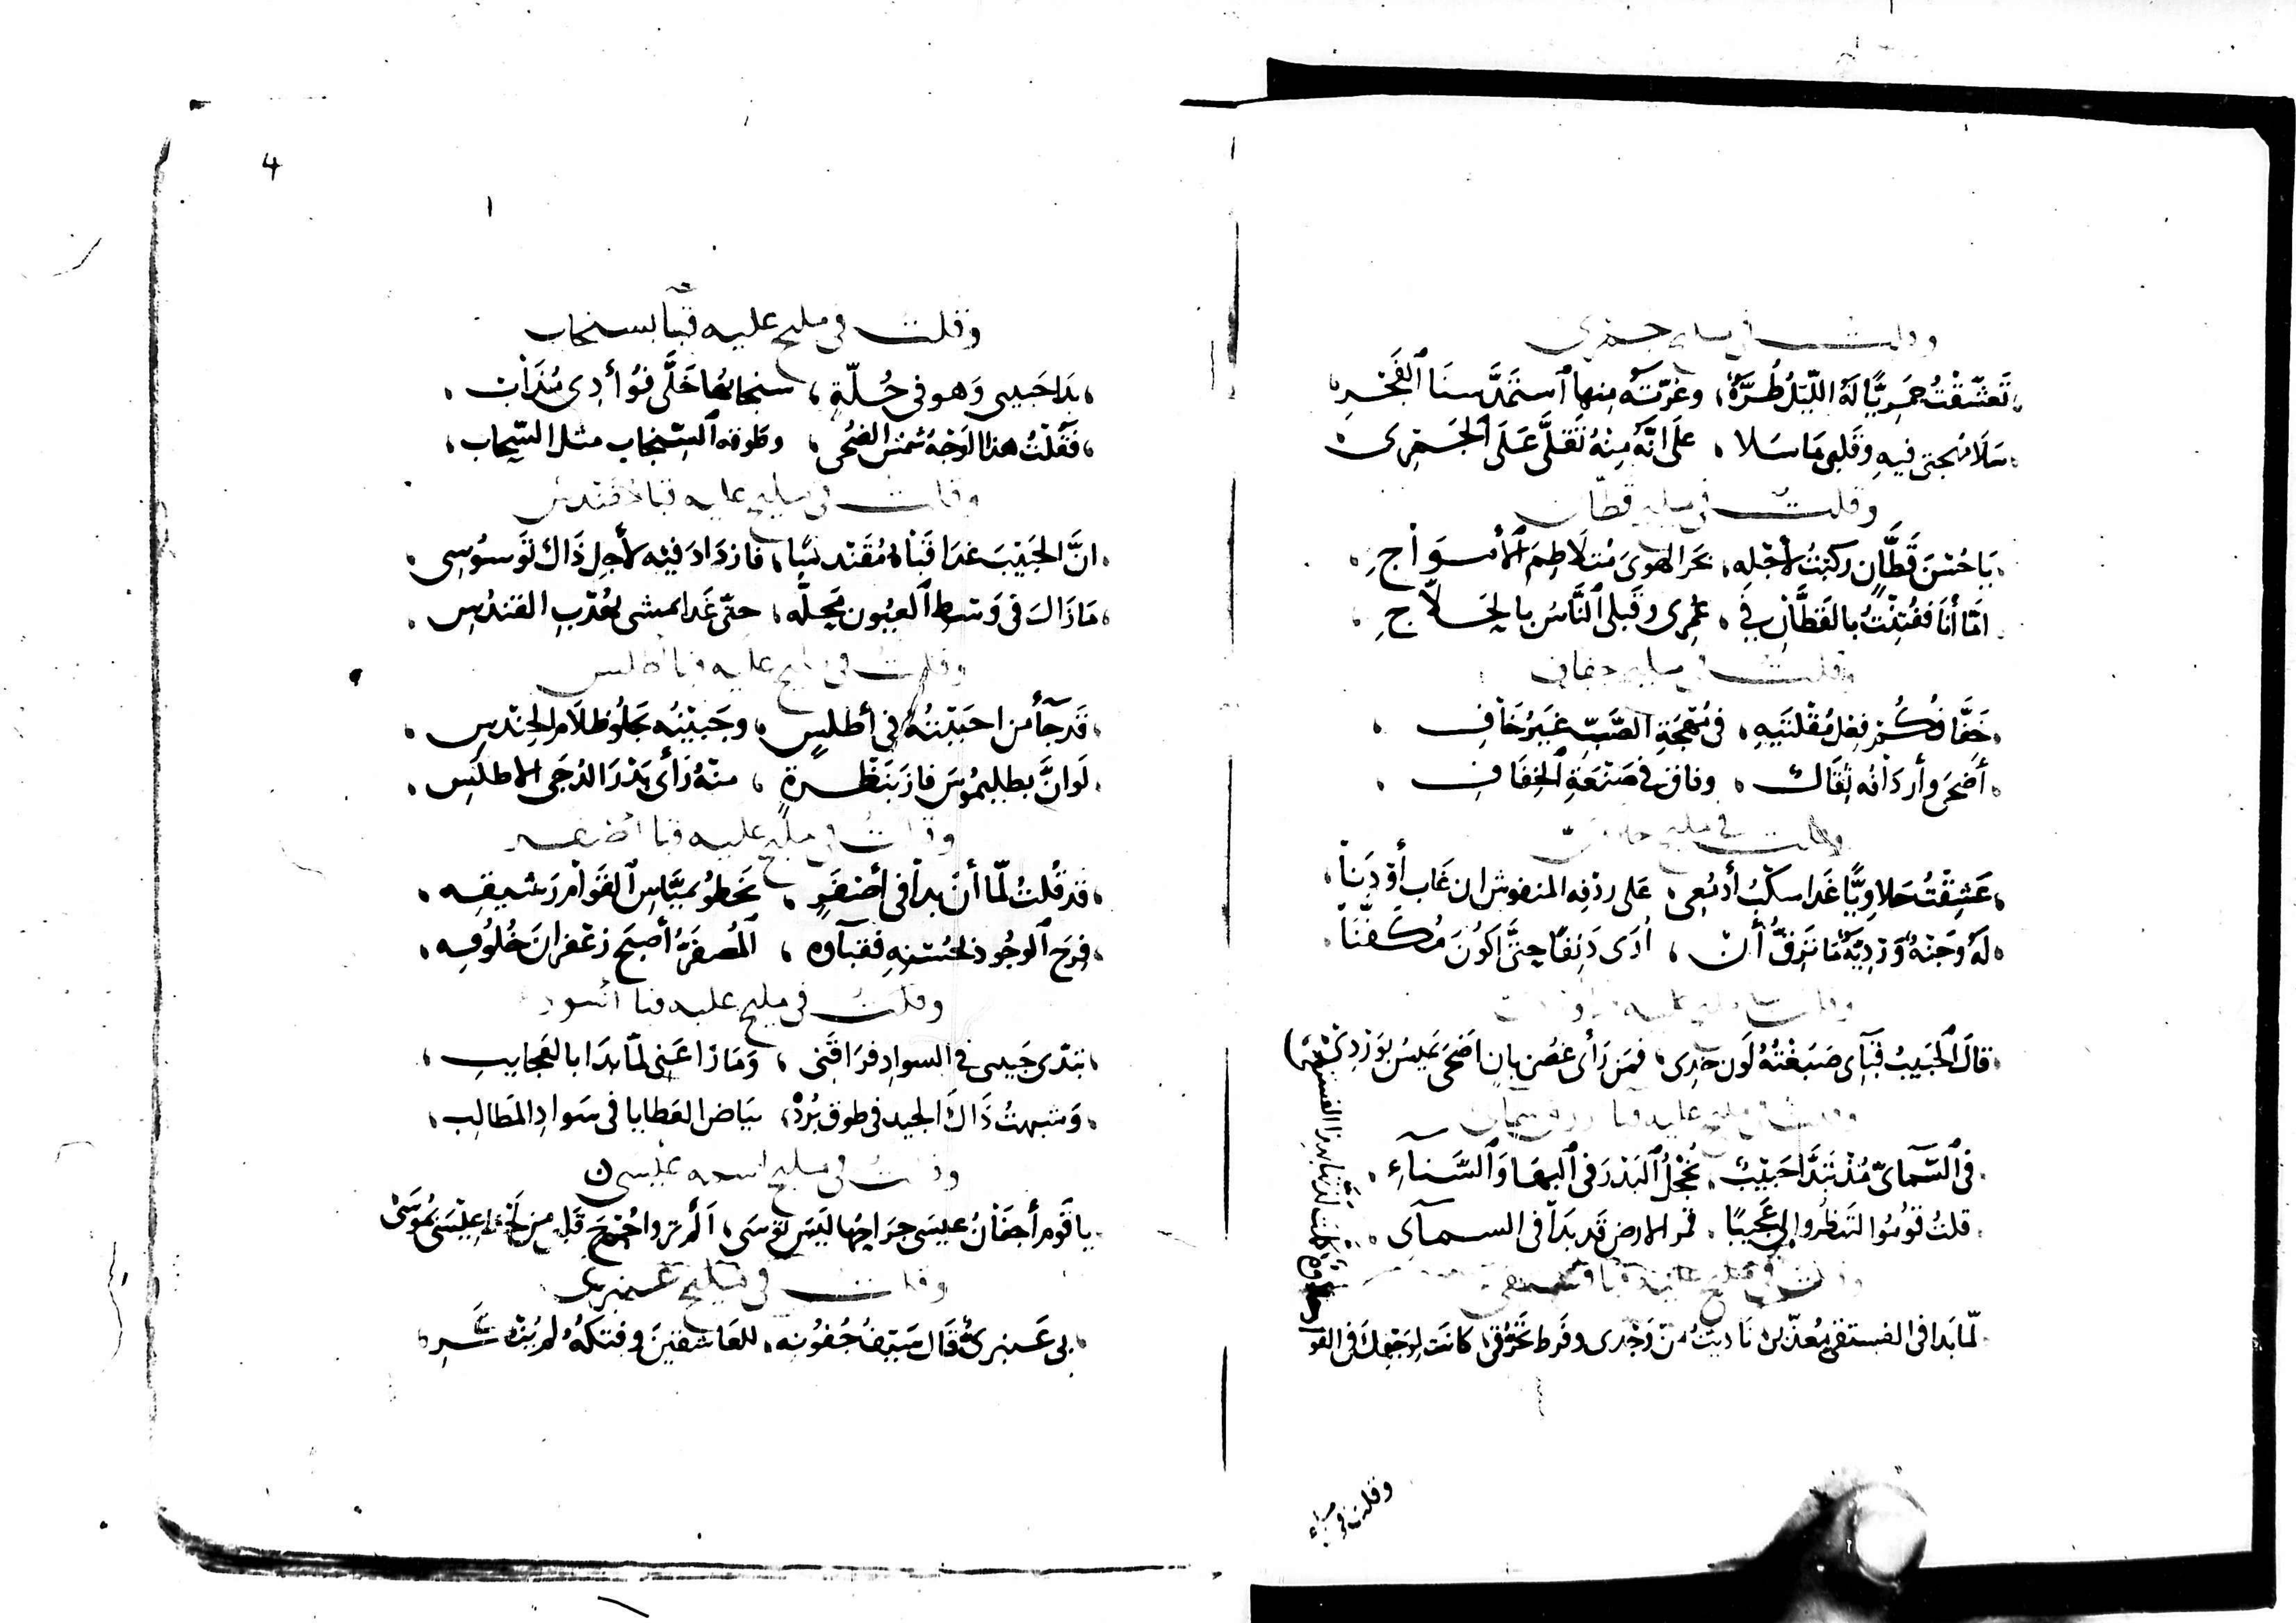 وقلت في مليح جمري
تَعَشَّقْتُ جَمرِيًّا لَهُ اللّيْلُ طُرَّةٌ، وغرّته منها ٱستَمَدَّ سنَا ٱلفَجْرِ
سَلَا مُهجتى فيهِ وقَلبى مَا سَلا، علَى انّه مِنْهُ تَقلَّى عَلَى ٱلجَمْرِى
وقلت في مليح قطّان
يَا حُسْنَ قَطَّانٍ ركبْتُ لأجْلِهِ، بحَر الهوَى مُتلَاطِمَ ٱلأمْوَاجِ
امّا أنَا ففُتِنْتُ بالقَطَّانِ في، عُمرِى وقَبلى ٱلنَّاسُ بالحَلاّجِ
وقلت في مليح خفافي
خَفَّافُكُمْ فِعْلُ مُقْلتَيهِ، في مُهْجَةِ الصَّبِّ غيَرُ خَافِ
أضْحَى وأردَافُه ثِقَالٌ، وفاقَ في صَنْعَةِ ٱلخِفَافِ
وقلت في مليح حلاوي
عَشِقْتُ حَلاوِيًّا غَدا سكْبُ أدمُعِى، على ردْفِه المنفوشِ ان غَاب أوْ دَنَا
لَهُ وَجَنَةٌ وَرْدِيّةٌ مَا تَرِقُّ أنْ، أرَى دَنِفًا حتَّى اكونَ مُكَفَّنَا
وقلت في مليح عليه
قالَ ٱلحَبيبُ قَبَآى صَبَغْتُهُ لَون خدِى، فمَن رَأى غصْن بانٍ اضحَى يميسُ بوَرْدِى
وقلت في مليح عليه قبا سمآئي
في ٱلسَّمآىّ مُذْ تَبَدَّا حَبيْبٌ، يُخْجلُ ٱلبَدْرَ فى ٱلبهَا وَٱلسَّناءِ
قلتُ قُومُوا لتنظرُوا لى عَجيبًا، قمَر الارض قد بَدَا فى السمآى
وقلت في مليح عليه قبا فستقي
لمّا بَدا فى الفستقى مُعذّبى نَاديتُ منْ وَجْدى وفَرط تَحَرُّقى، كانَت لِوَجْهِكَ فى القو
وقلت في
وقلت في مليح عليه قبا بسنجاب
بدَا حَبيبى وَهو فى حُلّةٍ، سنجابُها خَلَّى فُؤَادِى مُذَابْ
فَقُلْتُ هذا الوَجْهُ شمسُ الضُحى، وطوقه ٱلسّنجاب مثل السَّحاب
وقلت في مليح عليه قبا قندس
انَّ الحَبيْبَ غدَا قَبَاهُ مُقَنْدسًا، فازدَادَ فيْهِ لأجِل ذَاك تَوَسوُسِى
مَازَالَ فى وَسَطِ ٱلعيُون محِلّه، حتّى غَدا يمشى بهُدْبِ القندُسِ
وقلت في مليح عليه قبا أطلس
قَد جَآ من احبَبْتُهُ في أطلسٍ، وجَبيْنُه يجلُو ظلَام الحِنْدسِ
لَو انَّ بطليمُوسَ فازَ بَنَظْرةٍ، منهُ رَأى بَدْرَ الدُجَى الاطلَسِ
وقلت في مليح عليه قبا اصفر
قد قُلتُ لمّا أنْ بدَا فى أصْفَرٍ، يخطُو بميَّاسِ ٱلقَوَامِ رَشيقِهِ
فرَح ٱلوجُود لحُسْنِهِ فقبآوه، ٱلمُصفَرُّ أصبَح زعْفرانَ خُلُوقِهِ
وقلت في مليح عليه قبا اسود
تبَدّى حَبيبى فى السوادِ فرَاقَنى، وَمَا زاعَنى لمّا بدَا بالعَجَايبِ
وَشبهتُ ذَاكَ الجيد فى طوق بُرْدِهِ، بيَاض العَطايا فى سَوادِ المَطالِب
وقلت في مليح اسمه عيسى
يا قَوم أجفَانُ عيسَى جرَاحُها ليَس تُوسَى، ألَم تروا جُرْحَ قَلبى من لَحْظ عِيْسَى بمُوسَى
وقلت في مليح عنبري
بى عَنبرىٌّ قَال سَيفُ جُفُونِه، للعَاشقينَ وفتكهُ لم يُنْشَرِ